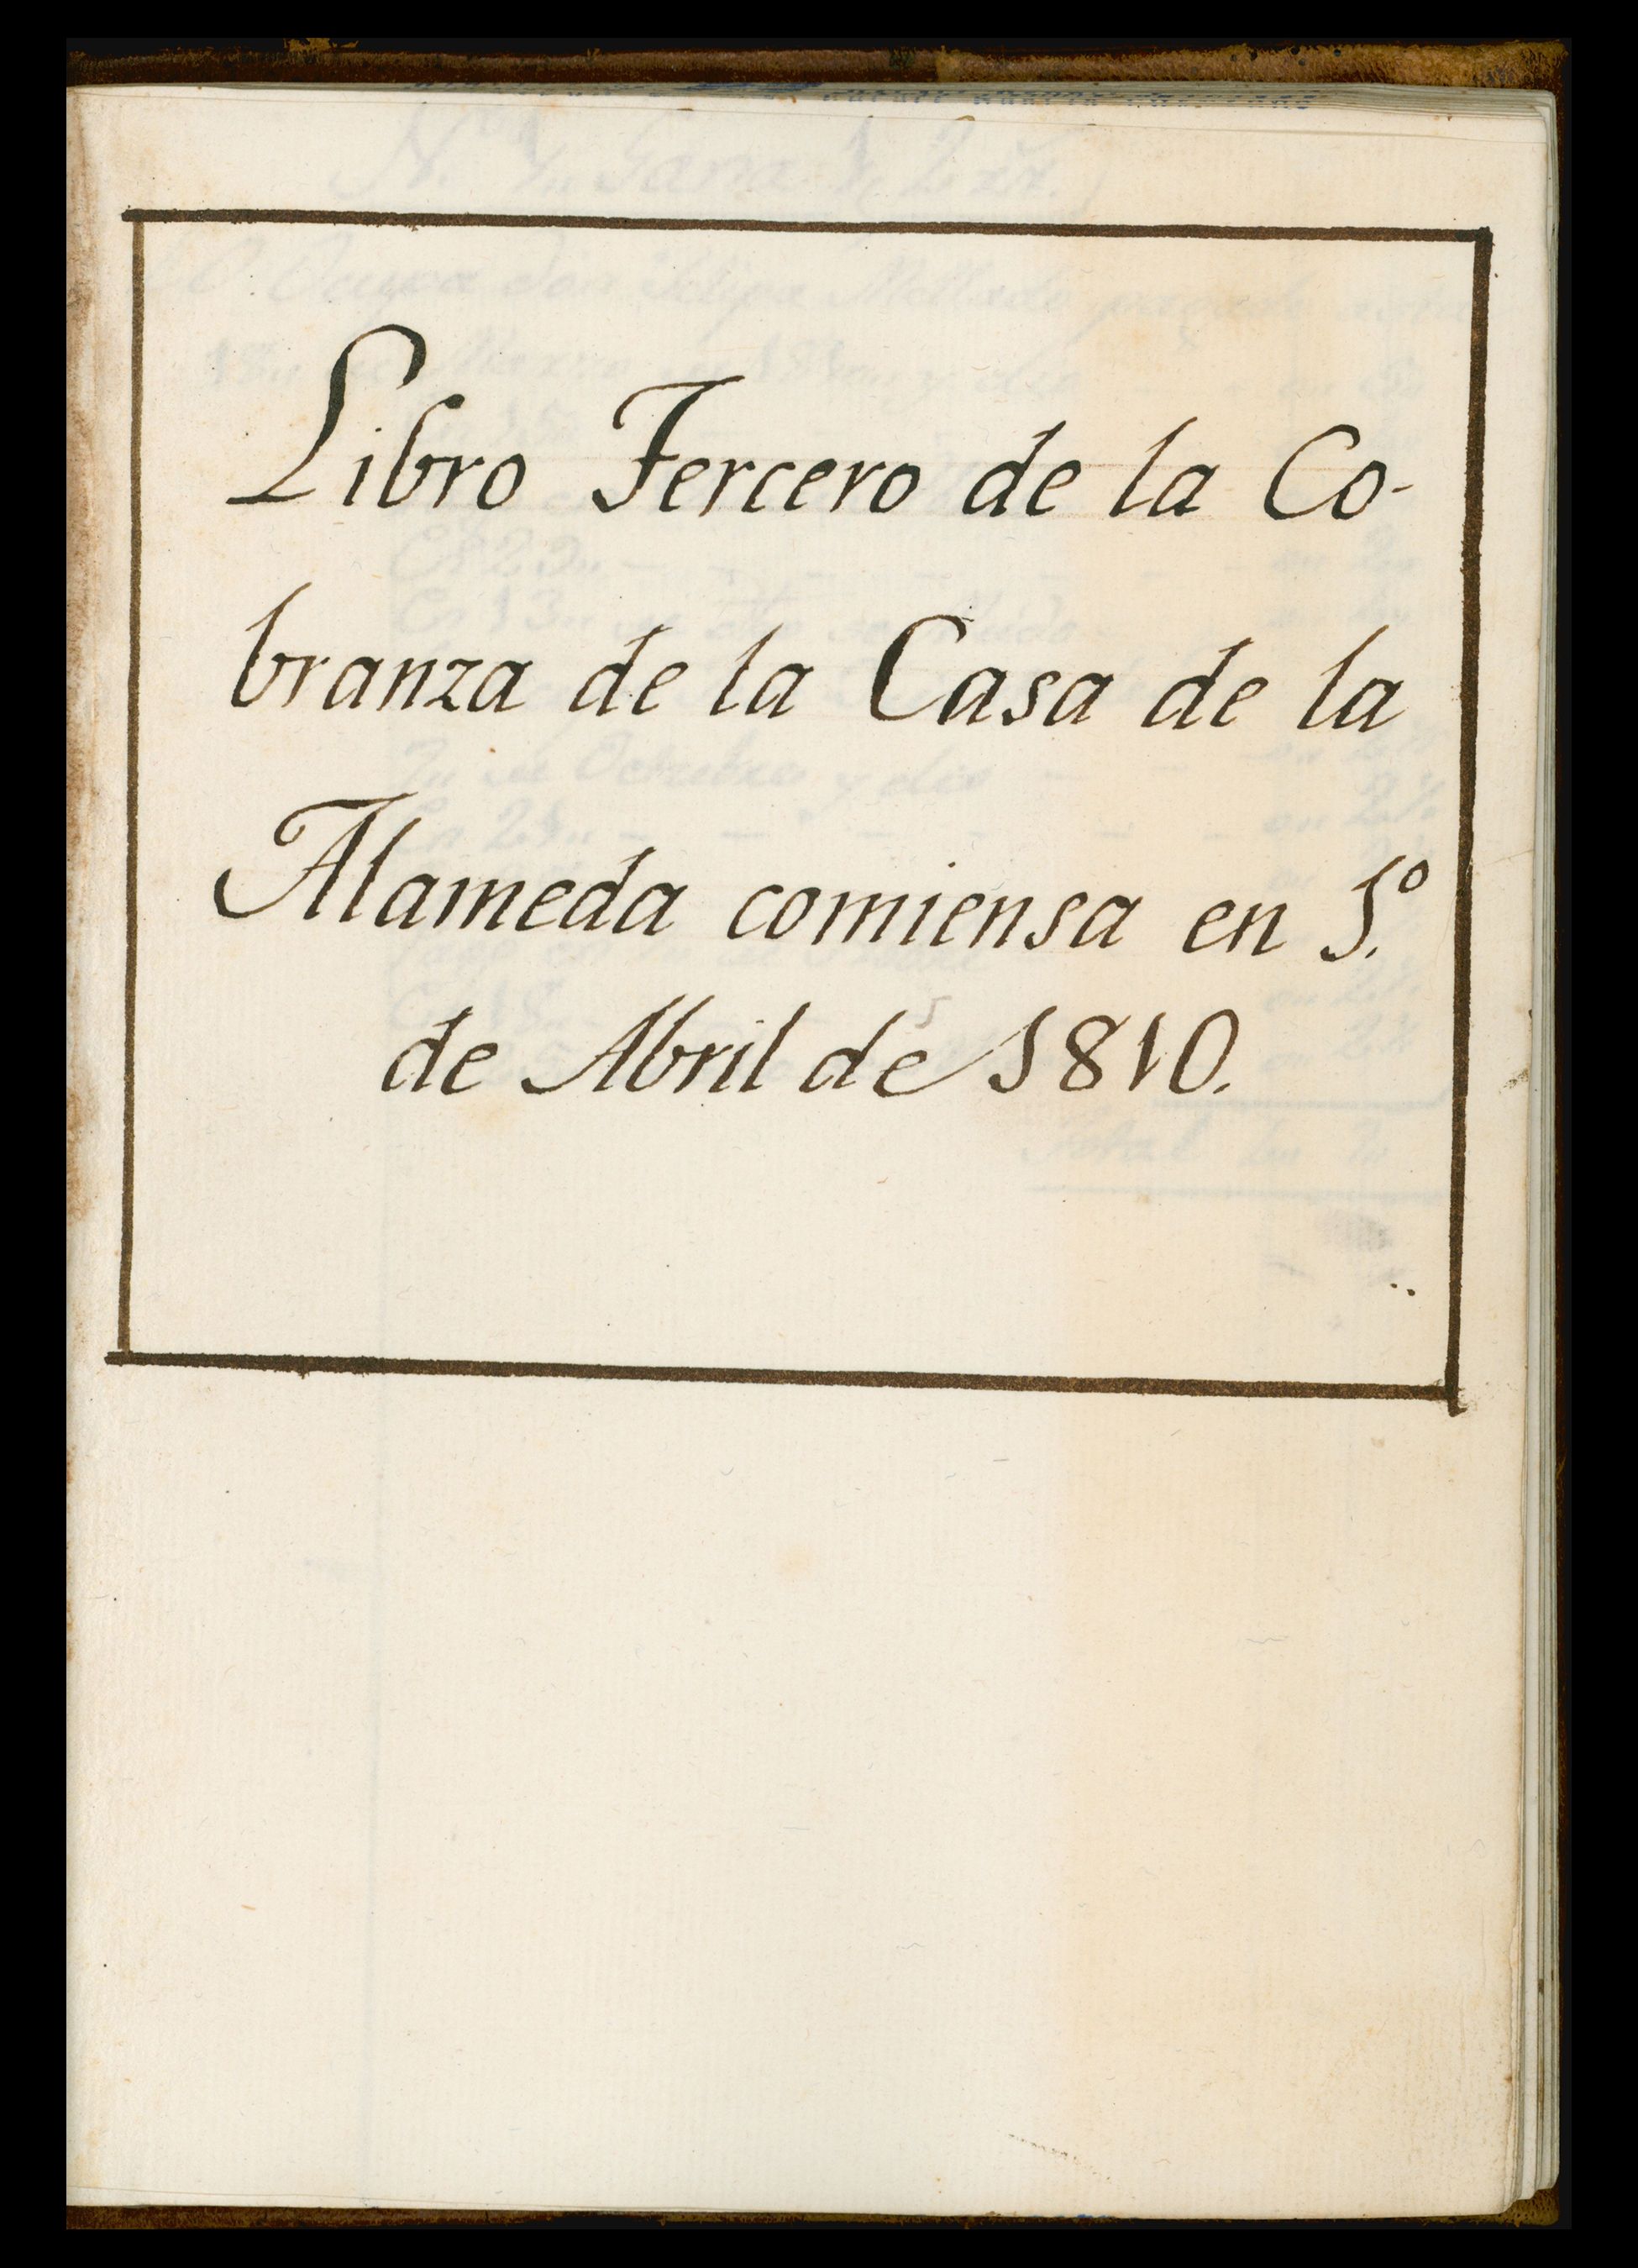 Libro Tercero de la Co-
branza de la Casa de la
Alameda comiensa en 1.º
de Abril de 1810.